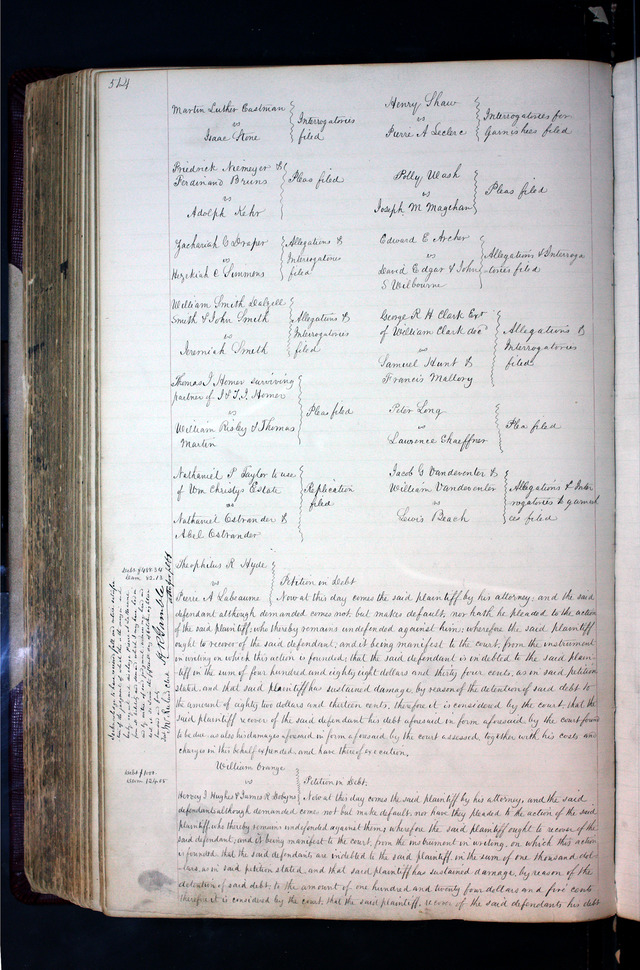 524
Martin Luther Eastman
vs
Isaac Stone
Interrogatories
filed
Henry Shaw
vs
Pierre A Leclerc
Interrogatories for
Garnishees filed
Friedrick Niemeyer &
Ferdinand Bruns
vs
Adolph Kehr
Pleas filed
Polly Wash
vs
Joseph M Magehan
Pleas filed
Zachariah C Draper
vs
Hezekiah C Simmons
Allegations &
Interrogatories
filed
Edward E Archer
vs
David Edgar & John
S Wilbourne
Allegations & Interroga
tories filed
William Smith Dalzell
Smith & John Smith
vs
Jeremiah Smith
Allegations &
Interrogatories
filed
George R H Clark Exr
of William Clark decd
vs
Samuel Hunt &
Francis Mallory
Allegations &
Interrogatories
filed
Thomas J Homer surviving
partner of J & T. J. Homer
vs
William Risley & Thomas
Martin
Pleas filed
Peter Long
vs
Lawrence Ehaeffner
Plea filed
Nathaniel P Taylor to use
of Wm Christys Estate
vs
Nathaniel Ostrander &
Abel Ostrander
Replication
filed
Jacob G Vandeventer &
William Vandeventer
vs
Lewis Beach
Allegations & Inter
rogatories to garnish
ees filed
Theophilus R Hyde
vs
Pierre A Labeaume
Petition on Debt
Debt $488.34
Dam 82.13
Now at this day comes the said plaintiff by his attorney; and the said
defendant although demanded comes not but makes default, nor hath he pleaded to the action
of the said plaintiff; who thereby remains undefended against him; wherefore the said plaintiff
ought to recover of the said defendant, and it being manifest to the court, from the instrument
in writing on which this action is founded, that the said defendant is indebted to the said plain-
tiff in the sum of four hundred and eighty eight dollars and thirty four cents, as in said petition
stated, and that said plaintiff has sustained damage, by reason of the detention of said debt to
the amount of eighty two dollars and thirteen cents, therefore it is considered by the court, that the
said plaintiff recover of the said defendant his debt aforesaid in form aforesaid, by the court found
to be due as also his damages aforesaid in form aforesaid by the court assessed, together with his costs and
charges in this behalf expended, and have thereof execution.
William Orange
vs
Hervey I Hughes & James R Dobyns
Petition on Debt.
Debt $1000.
Dam 124.05
Now at this day comes the said plaintiff by his attorney, and the said
defendants although demanded, come not but make default, nor have they pleaded to the action of the said
plaintiff, who thereby remains undefended against them; wherefore the said plaintiff ought to recover of the
said defendant; and it being manifest to the court, from the instrument in writing, on which this action
is founded, that the said defendants are indebted to the said plaintiff, in the sum of one thousand dol-
-lars, as in said petition stated, and that said plaintiff has sustained damage, by reason of the
detention of said debt, to the amount of one hundred and twenty four dollars and five cents
therefore it is considered by the court, that the said plaintiff, recover of the said defendants his debt